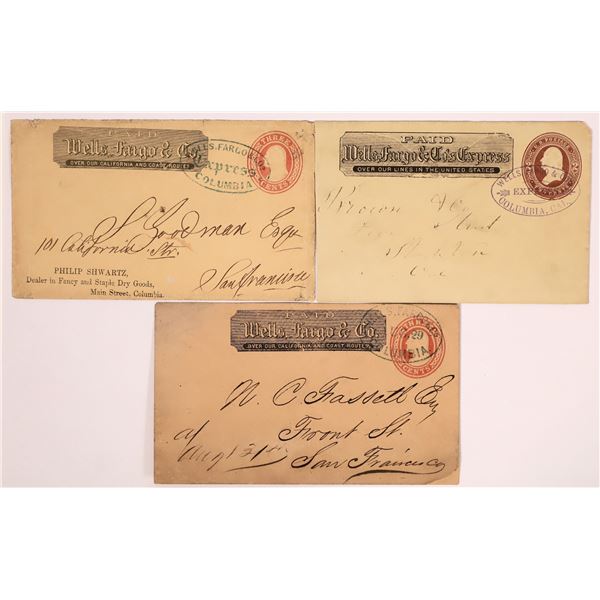 PAID
Wells, Fargo & Co.
OVER OUR CALIFORNIA AND COAST ROUTES
WELLS, FARGO & CO.
Express
COLUMBIA
THREE
CENTS
S Goodman Esqr
101 California Str.
San Francisco
PHILIP SHWARTZ,
Dealer in Fancy and Staple Dry Goods,
Main Street, Columbia.
PAID
Wells, Fargo & Co's Express
OVER OUR LINES IN THE UNITED STATES
WELLS & CO
COLUMBIA, CAL.
Brown
Cal
PAID
Wells, Fargo & Co.
OVER OUR CALIFORNIA AND COAST ROUTES
29
COLUMBIA
THREE
CENTS
N. C. Fassett Esq
Front St.
San Francisco